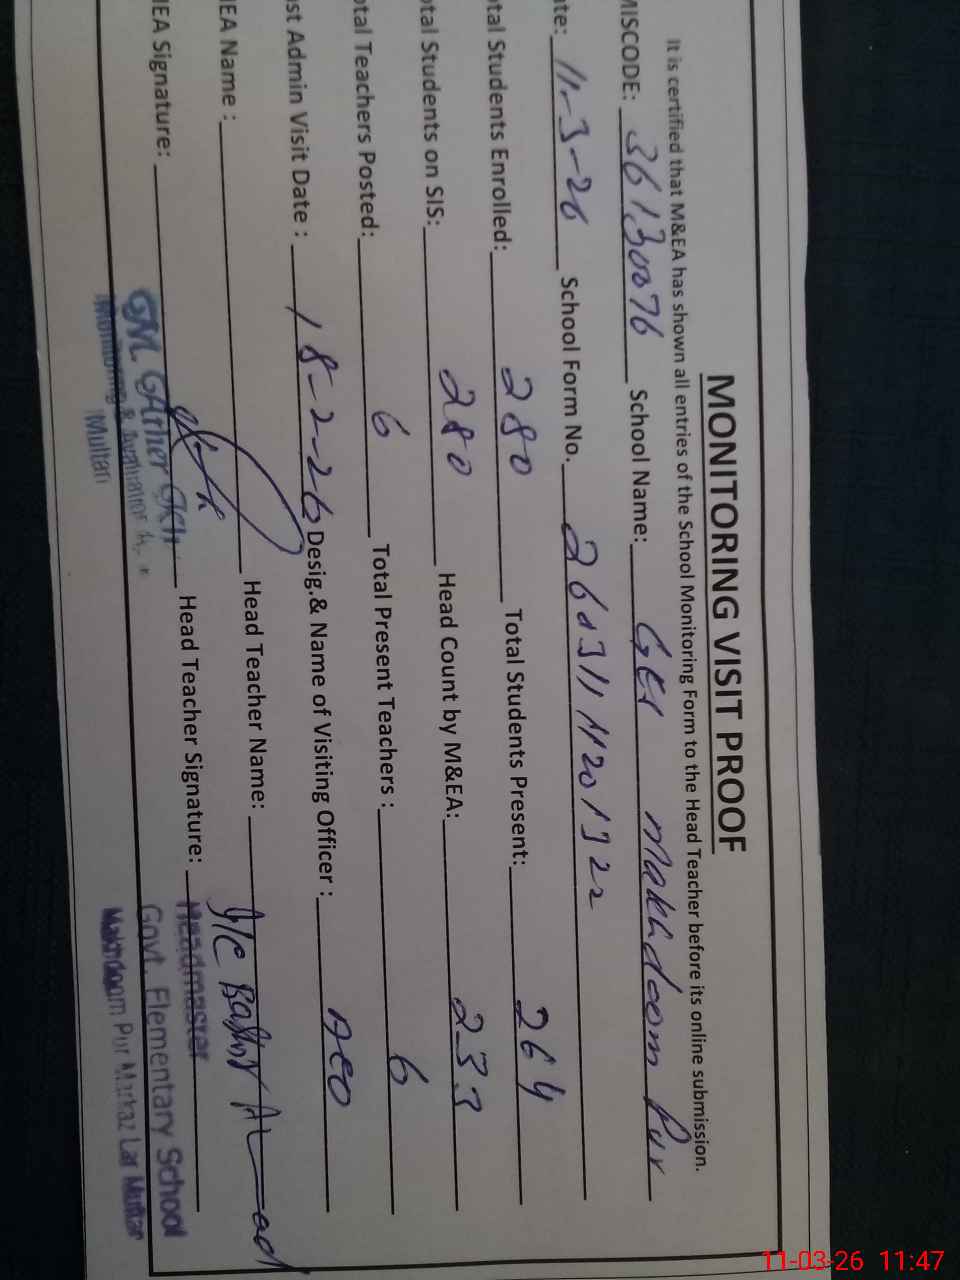 MONITORING VISIT PROOF
It is certified that M&EA has shown all entries of the School Monitoring Form to the Head Teacher before its online submission.
MISCODE: 36130076 School Name: GES Makhdoom Pur
ate: 11-3-26 School Form No.
otal Students Enrolled: 280 Total Students Present: 264
otal Students on SIS: 280 Head Count by M&EA: 233
otal Teachers Posted: 6 Total Present Teachers : 6
st Admin Visit Date : 18-2-26 Desig.& Name of Visiting Officer : AEO
IEA Name : Head Teacher Name: I/C
IEA Signature: Head Teacher Signature:
Headmaster
Govt. Elementary School
Makhdoom Pur Markaz Lar Multan
Monitoring &
Multan
11-03-26 11:47